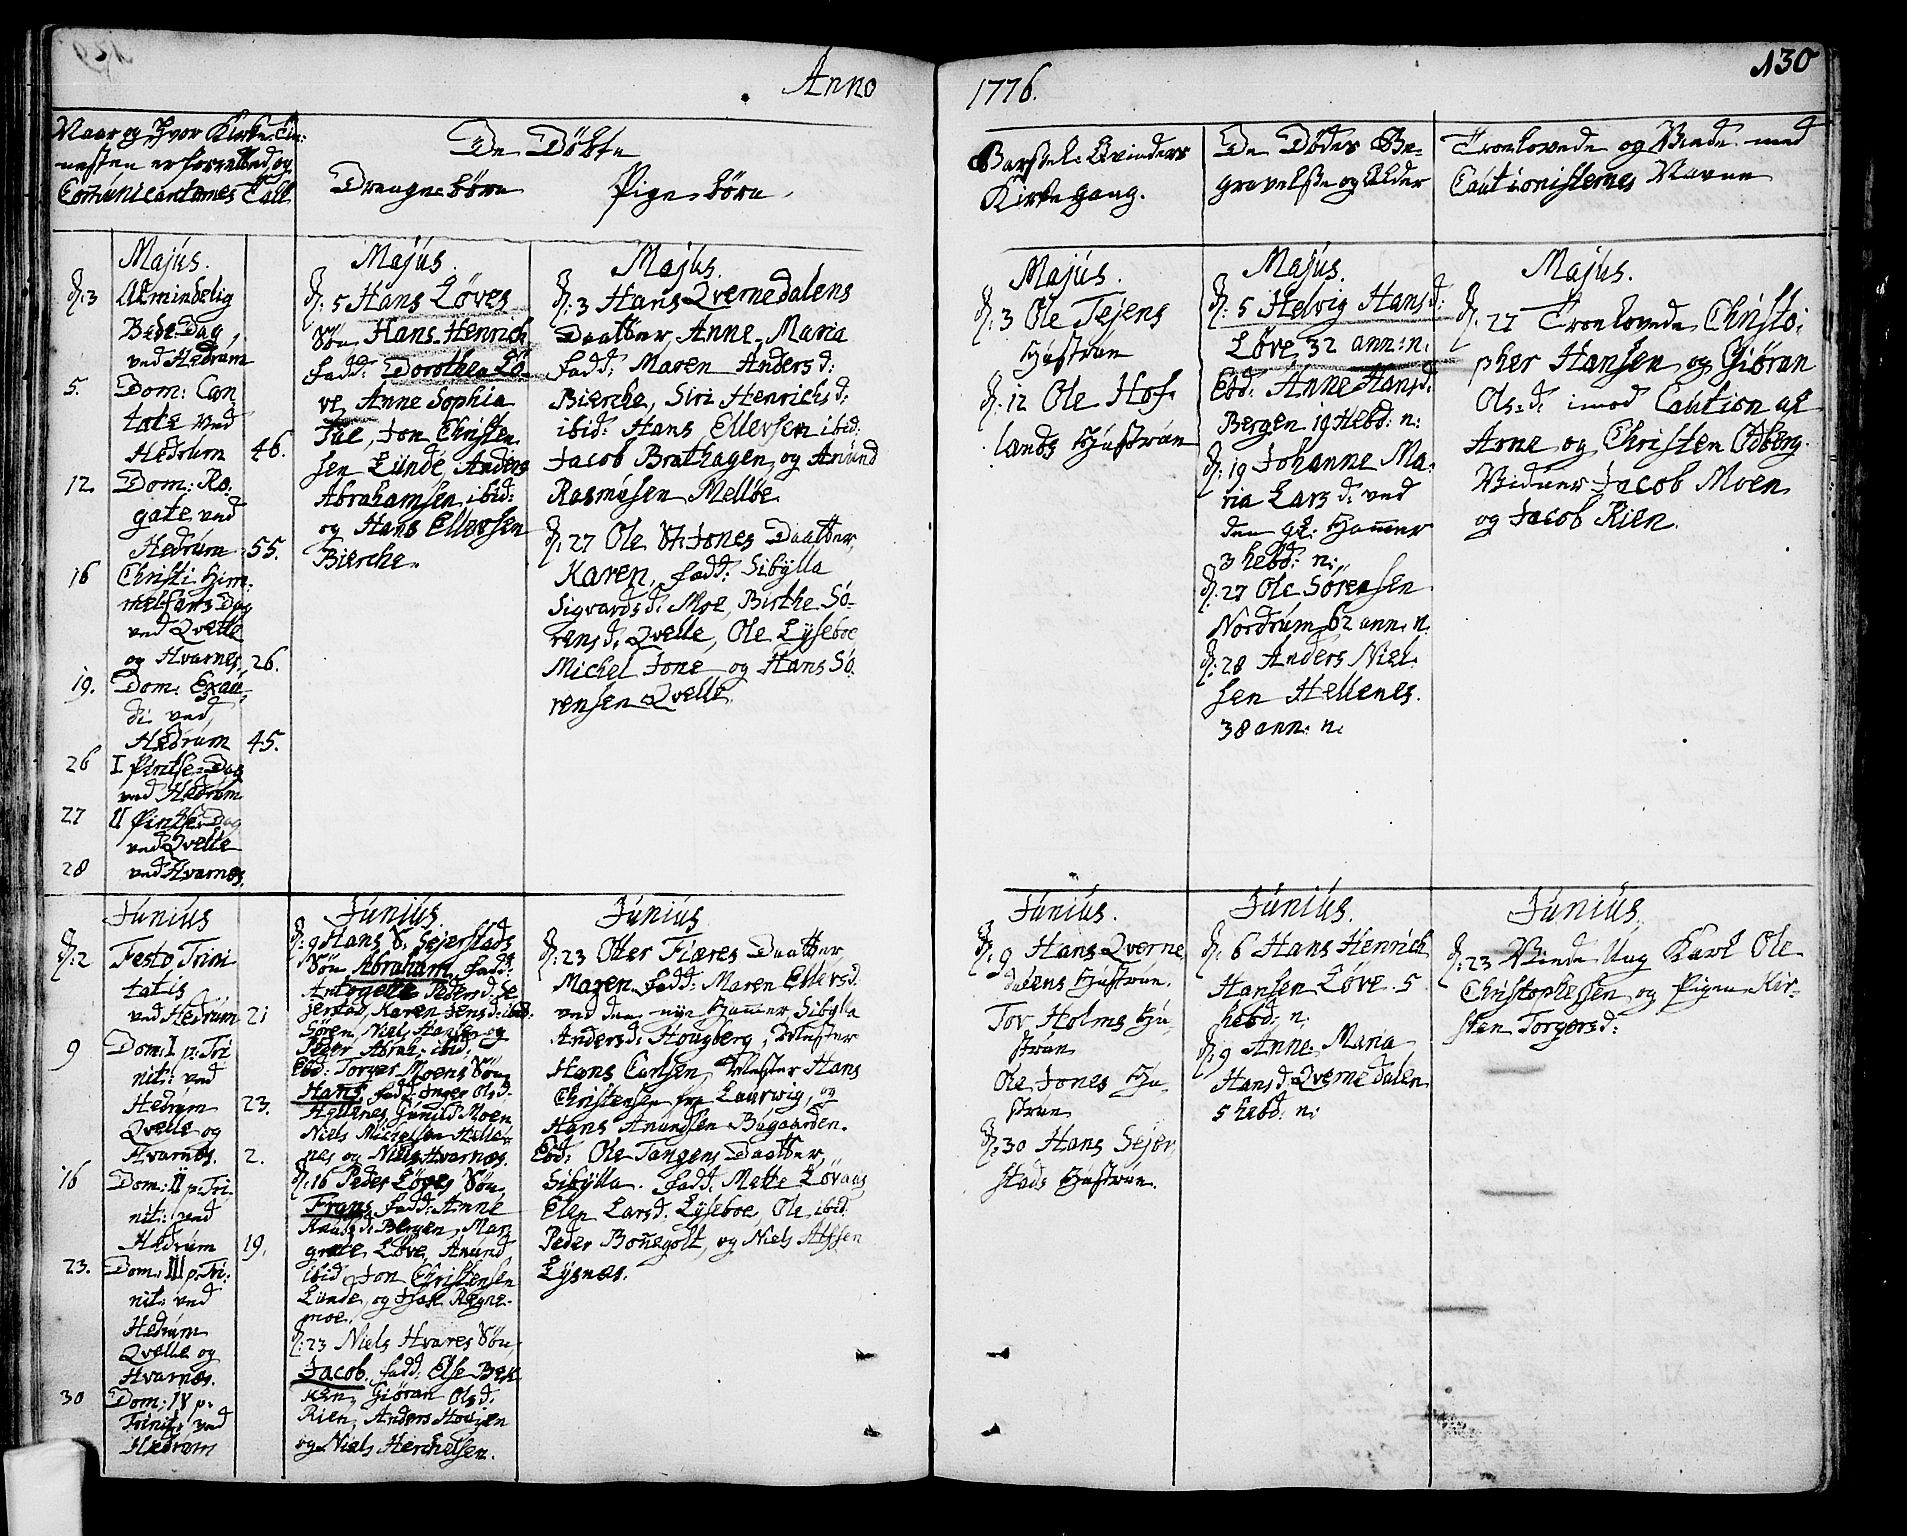 Anno
1776.
130
Naar og Hvor Kirke-Tie-
nesten er forrettet og
Comunicanternes Tall
De Døbte
Drenge-børn
Pige-børn
Barsel-Qvinders
Kirkegang.
De Dødes Be-
gravelse og Alder
Troelovede og Viede med
Cautionisternes Navne
Majus.
d: 3 Almindelig
Bede Dag
ved Hedrum
5. Dom: Can
tate ved
Hedrum 46.
12. Dom: Ro.
gate ved
Hedrum 55.
16 Christi Him-
melfarts Dag
ved Qvelle
og Hvarnes 26.
19. Dom: Exau-
di ved
Hedrum 45.
26 I Pintse-Dag
ved Hedrum
27 II Pintse-Dag
ved Qvelle
28 ved Hvarnes.
Majus.
d: 5 Hans Løves
Søn Hans Henrich
fadd: Dorothea Lø-
ve, Anne Sophia
Tue, Jon Christen
sen Lunde, Anders
Abrahamsen ibid:
og Hans Ellevsen
Bierche.
Majus.
d: 3 Hans Qvernedalens
Daatter, Anne Maria
fadd: Maren Andersd:
Bierche, Siri Henrichsd:
ibid: Hans Ellevsen ibid:
Jacob Brathagen, og Anund
Rasmusen Melløe.
d: 27 Ole St: Jones Daatter,
Karen, fadd: Sibylla
Sigvardsd: Moe, Birthe Sø-
rensd: Qvelle, Ole Lyseboe
Michel Jone og Hans Sø
rensen Qvelle.
Majus.
d: 3 Ole Tejens
Hustrue
d: 12 Ole Hof-
lands Hustrue
Majus.
d: 5 Helvig Hansd:
Løve 32 ann: n:
Eod: Anne Hansd:
Bergen 19 Hebd: n:
d: 19 Johanne Ma-
ria Larsd: ved
den gl: Hammer
3 hebd: n:
d: 27 Ole Sørensen
Nordrum 62 ann: n:
d: 28 Anders Niel-
sen Hellenes.
38 ann: n.
Majus.
d: 27 Troelovede Christo-
pher Hansen og Giøran
Ols-d: imod Caution af
Arne og Christen Odberg.
Vidner Jacob Moen
og Jacob Rien.
Junius
d: 2 Festo Trini
tatis
ved Hedrum 21
9 Dom: I p: Tri
nit: ved
Hedrum 23.
Qvelle og
Hvarnes. 2.
16 Dom: II p: Tri
nit: ved
Hedrum 19.
23. Dom: III p: Tri:
nit: ved
Hedrum
Qvelle og
Hvarnes.
30 Dom: IV p:
Trinit: ved
Hedrum
Junius.
d: 9 Hans Sejerstads
Søn Abraham, fadd:
Antogette Pedersd: Se
jerstad, Karen Jensd: ibid:
Søren, Niel Hansen og
Peder Abrah: ibid:
Eod: Torger Moens Søn
Hans, fadd: Inger Olsd:
Hellenes, Gunild Moen
Niels Michelsen Helle-
nes og Niels Hvarnes.
d: 16 Peder Løves Søn
Frans, fadd: Anne
Knudsd: Bergen, Mar
grete Løve, Anund
ibid: Jon Christensen
Lunde, og Isak Regne-
moe.
d: 23 Niels Hvares Søn
Jacob, fadd: Else Bek
ken, Giøran Olsd:
Rien, Anders Hougen
og Niels Herchelsen.
Junius.
d: 23 Otter Fiæres Daatter
Maren, fadd: Maren Ellevsd:
ved den nye Hammer, Sibylla
Andersd: Hougberg, Mester
Hans Carlsen, Mester Hans
Christensen fra Laurwig, og
Hans Anundsen Bugaarden.
Eod: Ole Tangens Daatter,
Sibylla. fadd: Mette Løvaas
Elen Larsd: Lyseboe, Ole ibid.
Peder Bonegolt, og Niels Alfsen
Lysnæs.
Junius.
d: 9 Hans Qverne
dalens Hustrue.
Tov Holms Hu-
strue
Ole Jones Hu-
strue
d: 30 Hans Sejer
stads Hustrue.
Junius.
d: 6 Hans Henrich
Hansen Løve. 5
hebd: n:
d: 9 Anne Maria
Hansd: Qvernedalen
5 hebd: n:
Junius.
d: 23 Viede Ung Karl Ole
Christophersen og Pigen Kir-
sten Torgersd: